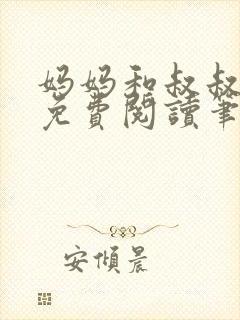 妈妈和叔叔
免費閱讀筆
安傾晨